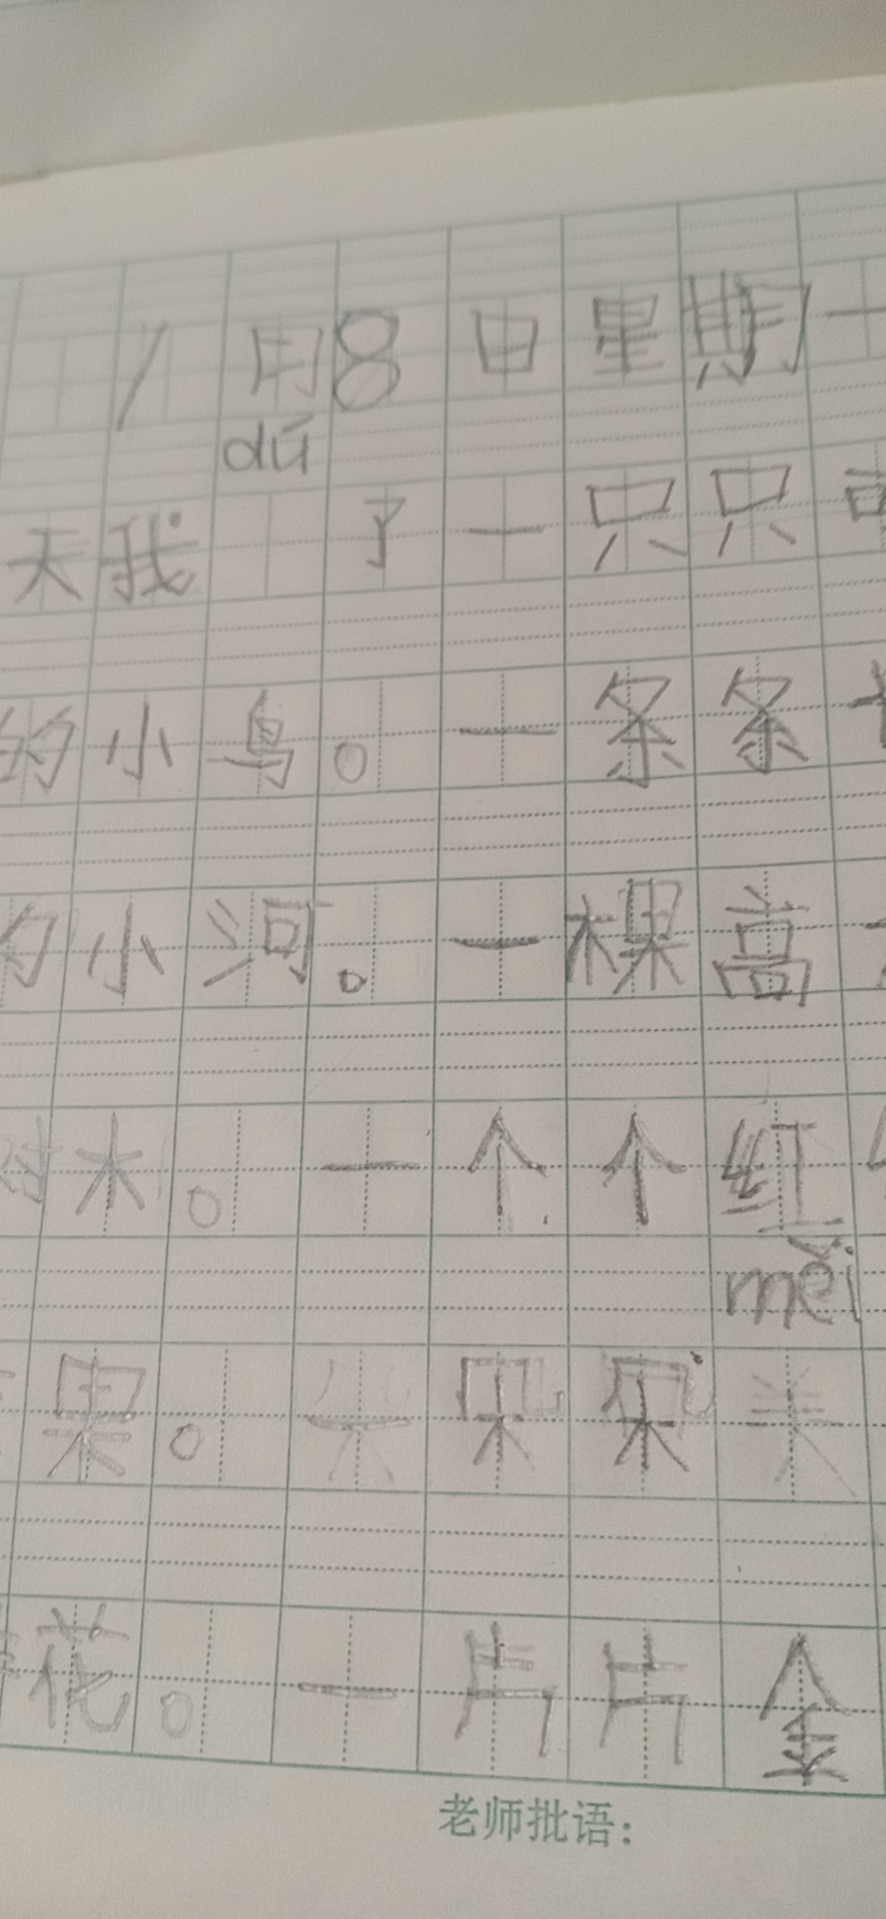 1月8日星期一
dú
天我 了一只只
的小鸟。一条条
的小河。一棵高
树木。一个个红
měi
果。一朵朵美
花。一片片金
老师批语: